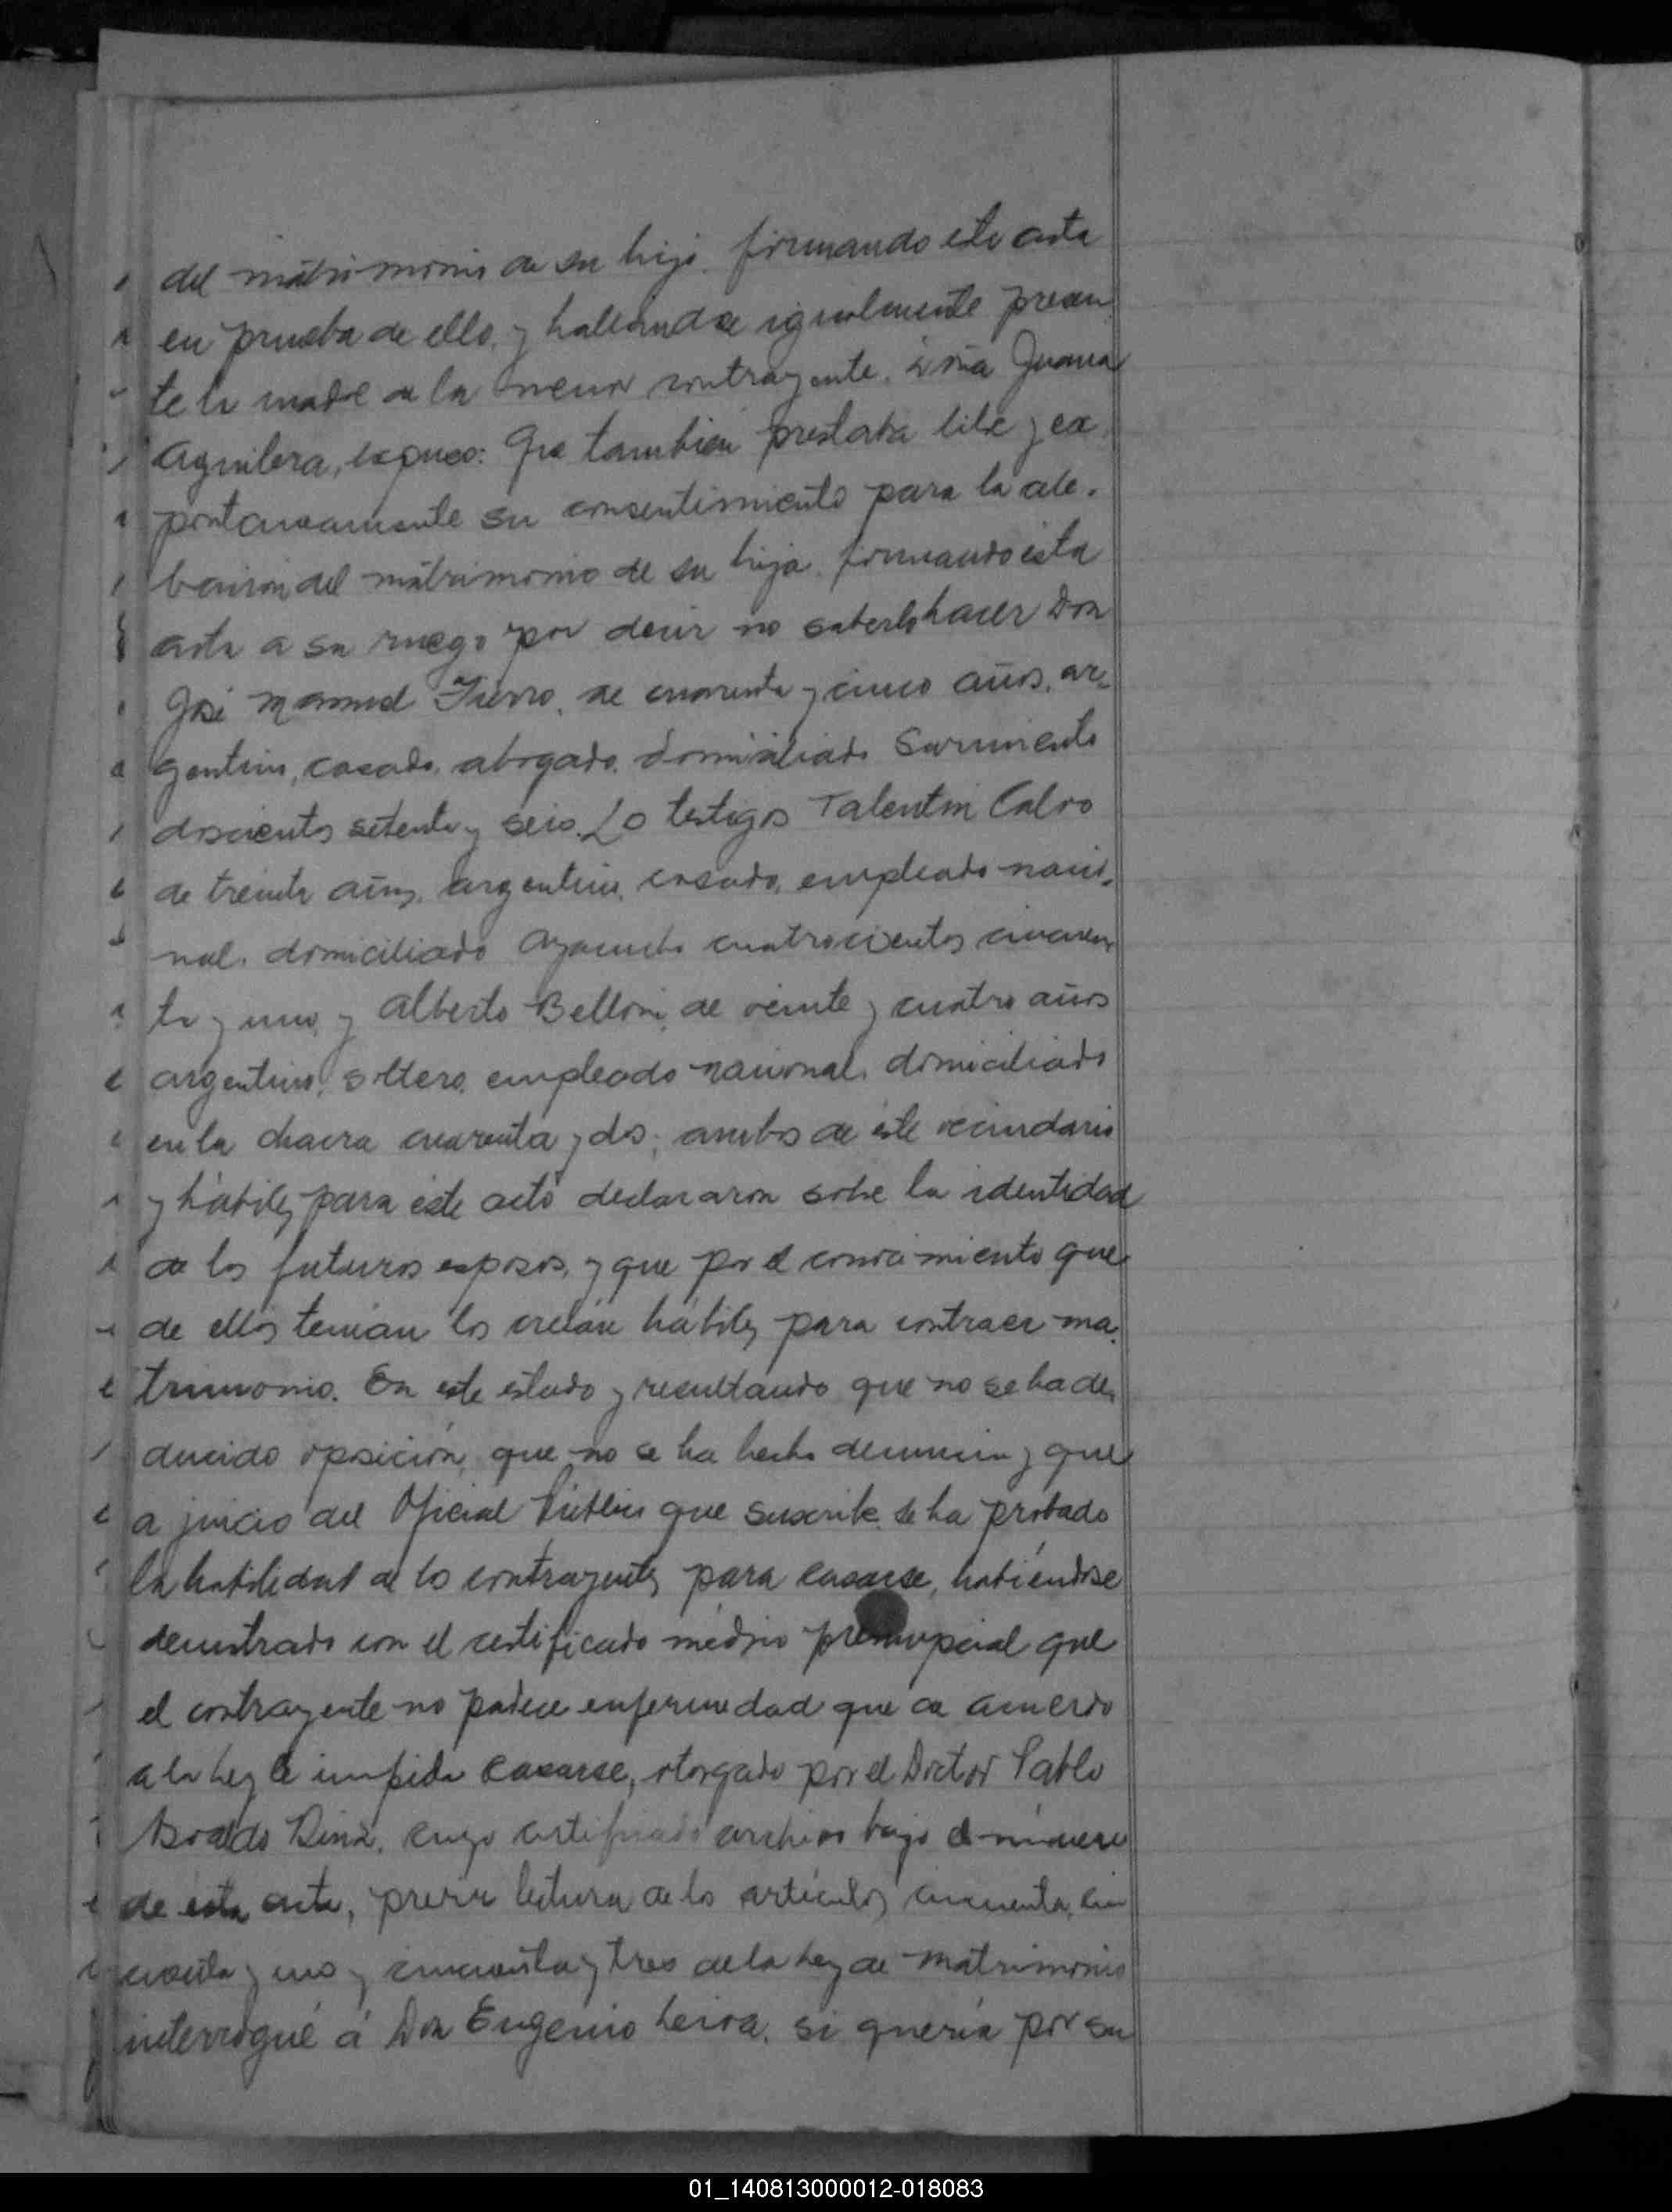 del matrimonio de su hijo, firmando esta acta
en prueba de ello, y hallandose igualmente presen
te la madre de la menor contrayente, doña Juana
Aguilera, expuso: Que tambien prestaba libre y es
pontaneamente su consentimiento para la cele.
bracion del matrimonio de su hija, firmando ésta
acta a su ruego por decir no saberlo hacer Don
José Manuel Fierro, de cuarenta y cinco años, ar
gentino, casado, abogado, domiciliado Sarmiento
doscientos setenta y seis. Los testigos Valentin Calvo
de treinta años, argentino, casado, empleado nacio
nal, domiciliado Ayacucho cuatrocientos cincuen
ta y uno, y Alberto Belloni, de veinte y cuatro años
argentino, soltero, empleado nacional, domiciliado
en la chacra cuarenta y dos; ambos de éste vecindario
y hábiles para éste acto declararon sobre la identidad
de los futuros esposos, y que por el conocimiento que
de ellos tenian los creían hábiles para contraer ma
trimonio. En este estado y resultando que no se ha de
ducido oposición, que no se ha hecho denuncia y que
a juicio del Oficial Público que suscribe se ha probado
la habilidad de los contrayentes para casarse, habiéndose
demostrado con el certificado médico prenupcial que
el contrayente no padece enfermedad que de acuerdo
a la ley le impida casarse, otorgado por el Doctor Pablo
cuyo certificado archivo bajo el número
de ésta acta, previa lectura de los artículos cincuenta, cin
cuenta y uno y cincuenta y tres de la ley de matrimonio
interrogué á Don Eugenio Leiva, si quería por su
01_140813000012-018083